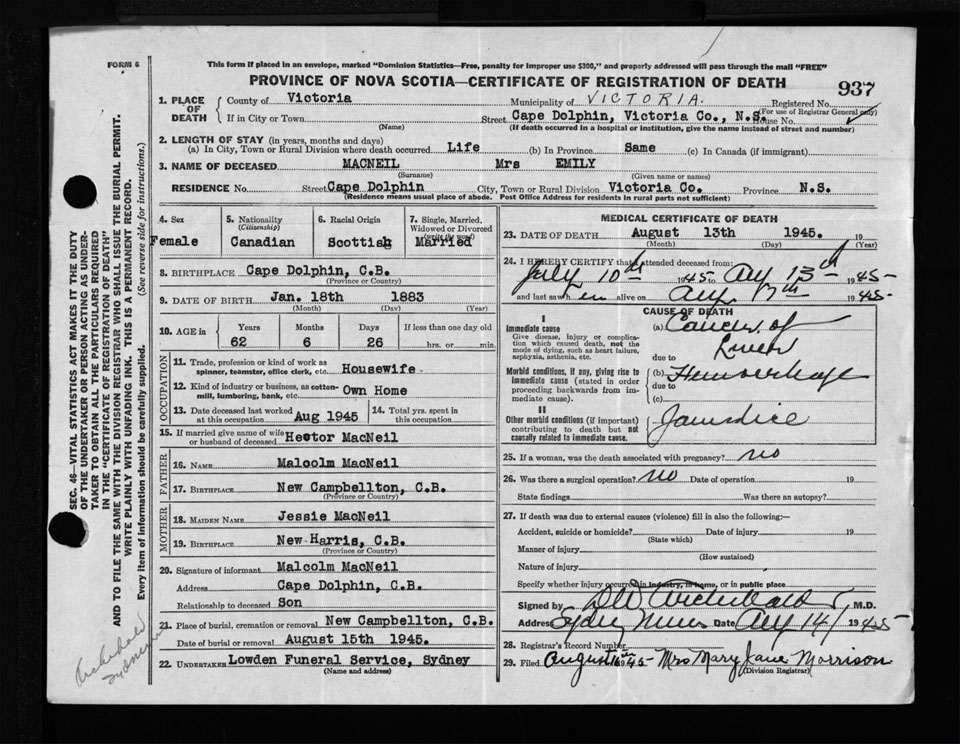 FORM 6
This form if placed in an envelope, marked "Dominion Statistics—Free, penalty for improper use $300," and properly addressed will pass through the mail "FREE"
PROVINCE OF NOVA SCOTIA—CERTIFICATE OF REGISTRATION OF DEATH
937
1. PLACE OF DEATH
County of Victoria Municipality of VICTORIA. Registered No.
(For use of Registrar General only)
If in City or Town Street Cape Dolphin, Victoria Co., N.S. House No.
(Name) (If death occurred in a hospital or institution, give the name instead of street and number)
2. LENGTH OF STAY (in years, months and days)
(a) In City, Town or Rural Division where death occurred Life (b) In Province Same (c) In Canada (if immigrant)
3. NAME OF DECEASED MACNEIL Mrs EMILY
(Surname) (Given name or names)
RESIDENCE No. Street Cape Dolphin City, Town or Rural Division Victoria Co. Province N.S.
(Residence means usual place of abode. Post Office Address for residents in rural parts not sufficient)
4. Sex
Female
5. Nationality
(Citizenship)
Canadian
6. Racial Origin
Scottish
7. Single, Married, Widowed or Divorced
(write the word)
Married
8. BIRTHPLACE Cape Dolphin, C.B.
(Province or Country)
9. DATE OF BIRTH Jan. 18th 1883
(Month) (Day) (Year)
10. AGE in Years Months Days If less than one day old
62 6 26 hrs. or min.
OCCUPATION
11. Trade, profession or kind of work as
spinner, teamster, office clerk, etc. Housewife
12. Kind of industry or business, as cotton-
mill, lumbering, bank, etc. Own Home
13. Date deceased last worked
at this occupation Aug 1945
14. Total yrs. spent in
this occupation
15. If married give name of wife
or husband of deceased Hector MacNeil
FATHER
16. NAME Malcolm MacNeil
17. BIRTHPLACE New Campbellton, C.B.
(Province or Country)
MOTHER
18. MAIDEN NAME Jessie MacNeil
19. BIRTHPLACE New Harris, C.B.
(Province or Country)
20. Signature of informant Malcolm MacNeil
Address Cape Dolphin, C.B.
Relationship to deceased Son
21. Place of burial, cremation or removal New Campbellton, C.B.
Date of burial or removal August 15th 1945.
22. UNDERTAKER Lowden Funeral Service, Sydney
(Name and address)
MEDICAL CERTIFICATE OF DEATH
23. DATE OF DEATH August 13th 1945. 19
(Month) (Day) (Year)
24. I HEREBY CERTIFY that I attended deceased from:
July 10th 1945 to Aug 13th 1945
and last saw her alive on Aug 1945
CAUSE OF DEATH
I
Immediate cause
Give disease, injury or complication which caused death, not the mode of dying, such as heart failure, asphyxia, asthenia, etc.
(a) Cancer of
Liver
due to
Morbid conditions, if any, giving rise to immediate cause (stated in order proceeding backwards from immediate cause).
(b) Hemorrhage
due to
(c)
II
Other morbid conditions (if important) contributing to death but not causally related to immediate cause.
Jaundice
25. If a woman, was the death associated with pregnancy? no
26. Was there a surgical operation? no Date of operation 19
State findings Was there an autopsy?
27. If death was due to external causes (violence) fill in also the following:—
Accident, suicide or homicide? Date of injury 19
(State which)
Manner of injury
(How sustained)
Nature of injury
Specify whether injury occurred in industry, in home, or in public place
Signed by Archibald M.D.
Address Sydney Mines Date Aug 14/ 1945
28. Registrar's Record Number
29. Filed August 1945 Mrs Mary Jane Morrison
(Division Registrar)
SEC. 46—VITAL STATISTICS ACT MAKES IT THE DUTY
OF THE UNDERTAKER OR PERSON ACTING AS UNDER-
TAKER TO OBTAIN ALL THE PARTICULARS REQUIRED
IN THE "CERTIFICATE OF REGISTRATION OF DEATH"
AND TO FILE THE SAME WITH THE DIVISION REGISTRAR WHO SHALL ISSUE THE BURIAL PERMIT.
WRITE PLAINLY WITH UNFADING INK. THIS IS A PERMANENT RECORD.
Every item of information should be carefully supplied. (See reverse side for instructions.)
Archibald